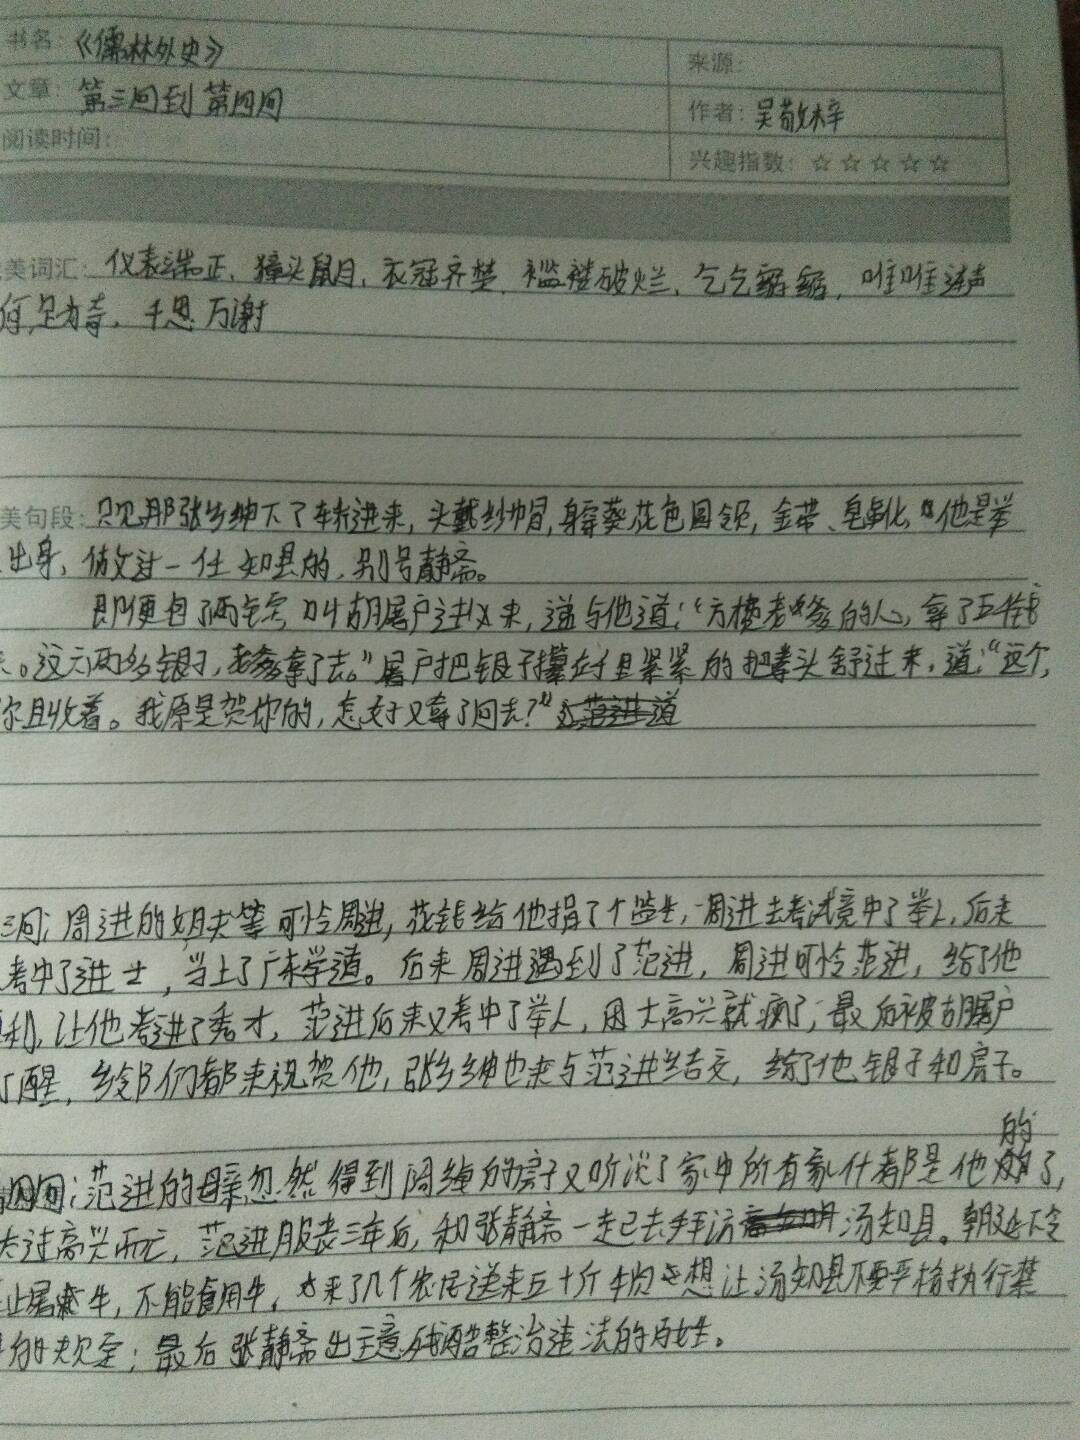 书名：《儒林外史》
来源：
文章：第三回到第四回
作者：吴敬梓
阅读时间：
兴趣指数：☆☆☆☆☆
美词汇：仪表端正、獐头鼠目、衣冠齐楚、褴褛破烂、乞乞缩缩、唯唯连声
何足为奇、千恩万谢
美句段：只见那张乡绅下了轿进来，头戴纱帽，身穿葵花色圆领，金带、皂靴。他是举
出身，做过一任知县的，别号静斋。
即便包了两锭，叫胡屠户进来，递与他道：“方才老爹的心，拿了五千钱
来。这六两多银子，老爹拿了去。”屠户把银子攥在手里紧紧的把拳头舒过来，道：“这个，
你且收着。我原是贺你的，怎好又拿了回去？”
三回：周进的姐夫等可怜周进，花钱给他捐了个监生，周进去考试竟中了举人，后来
考中了进士，当上了广东学道。后来周进遇到了范进，周进可怜范进，给了他
利，让他考进了秀才，范进后来又考中了举人，因太高兴就疯了；最后被胡屠户
了醒，给邻们都来祝贺他，张乡绅也来与范进结交，给了他银子和房子。
的
四回：范进的母亲忽然得到阔绰的房子又听说了家中所有家什都是他的了，
太过高兴而亡，范进服丧三年后，和张静斋一起已去拜访汤知县。朝廷下令
止屠宰牛，不能食用牛，来了几个农民送来五十斤牛肉想让汤知县不要严格执行禁
的规定；最后张静斋出主意残酷整治违法的百姓。